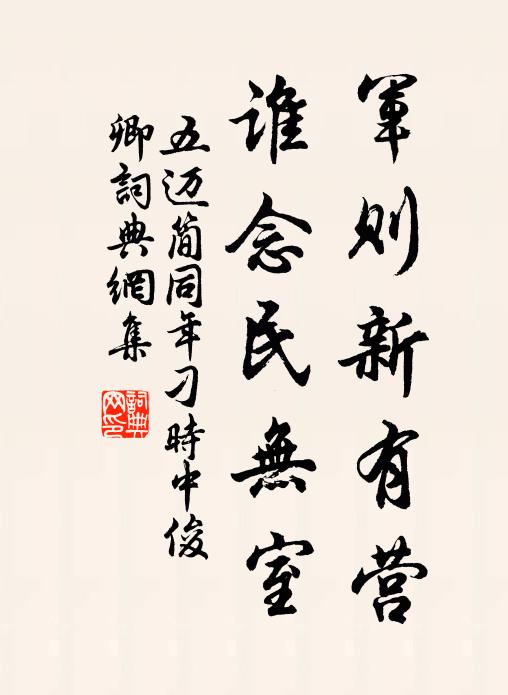 軍則新有营
誰念民無室
五迈簡同年刁時中俊
卿詞典網集
詞典
网印